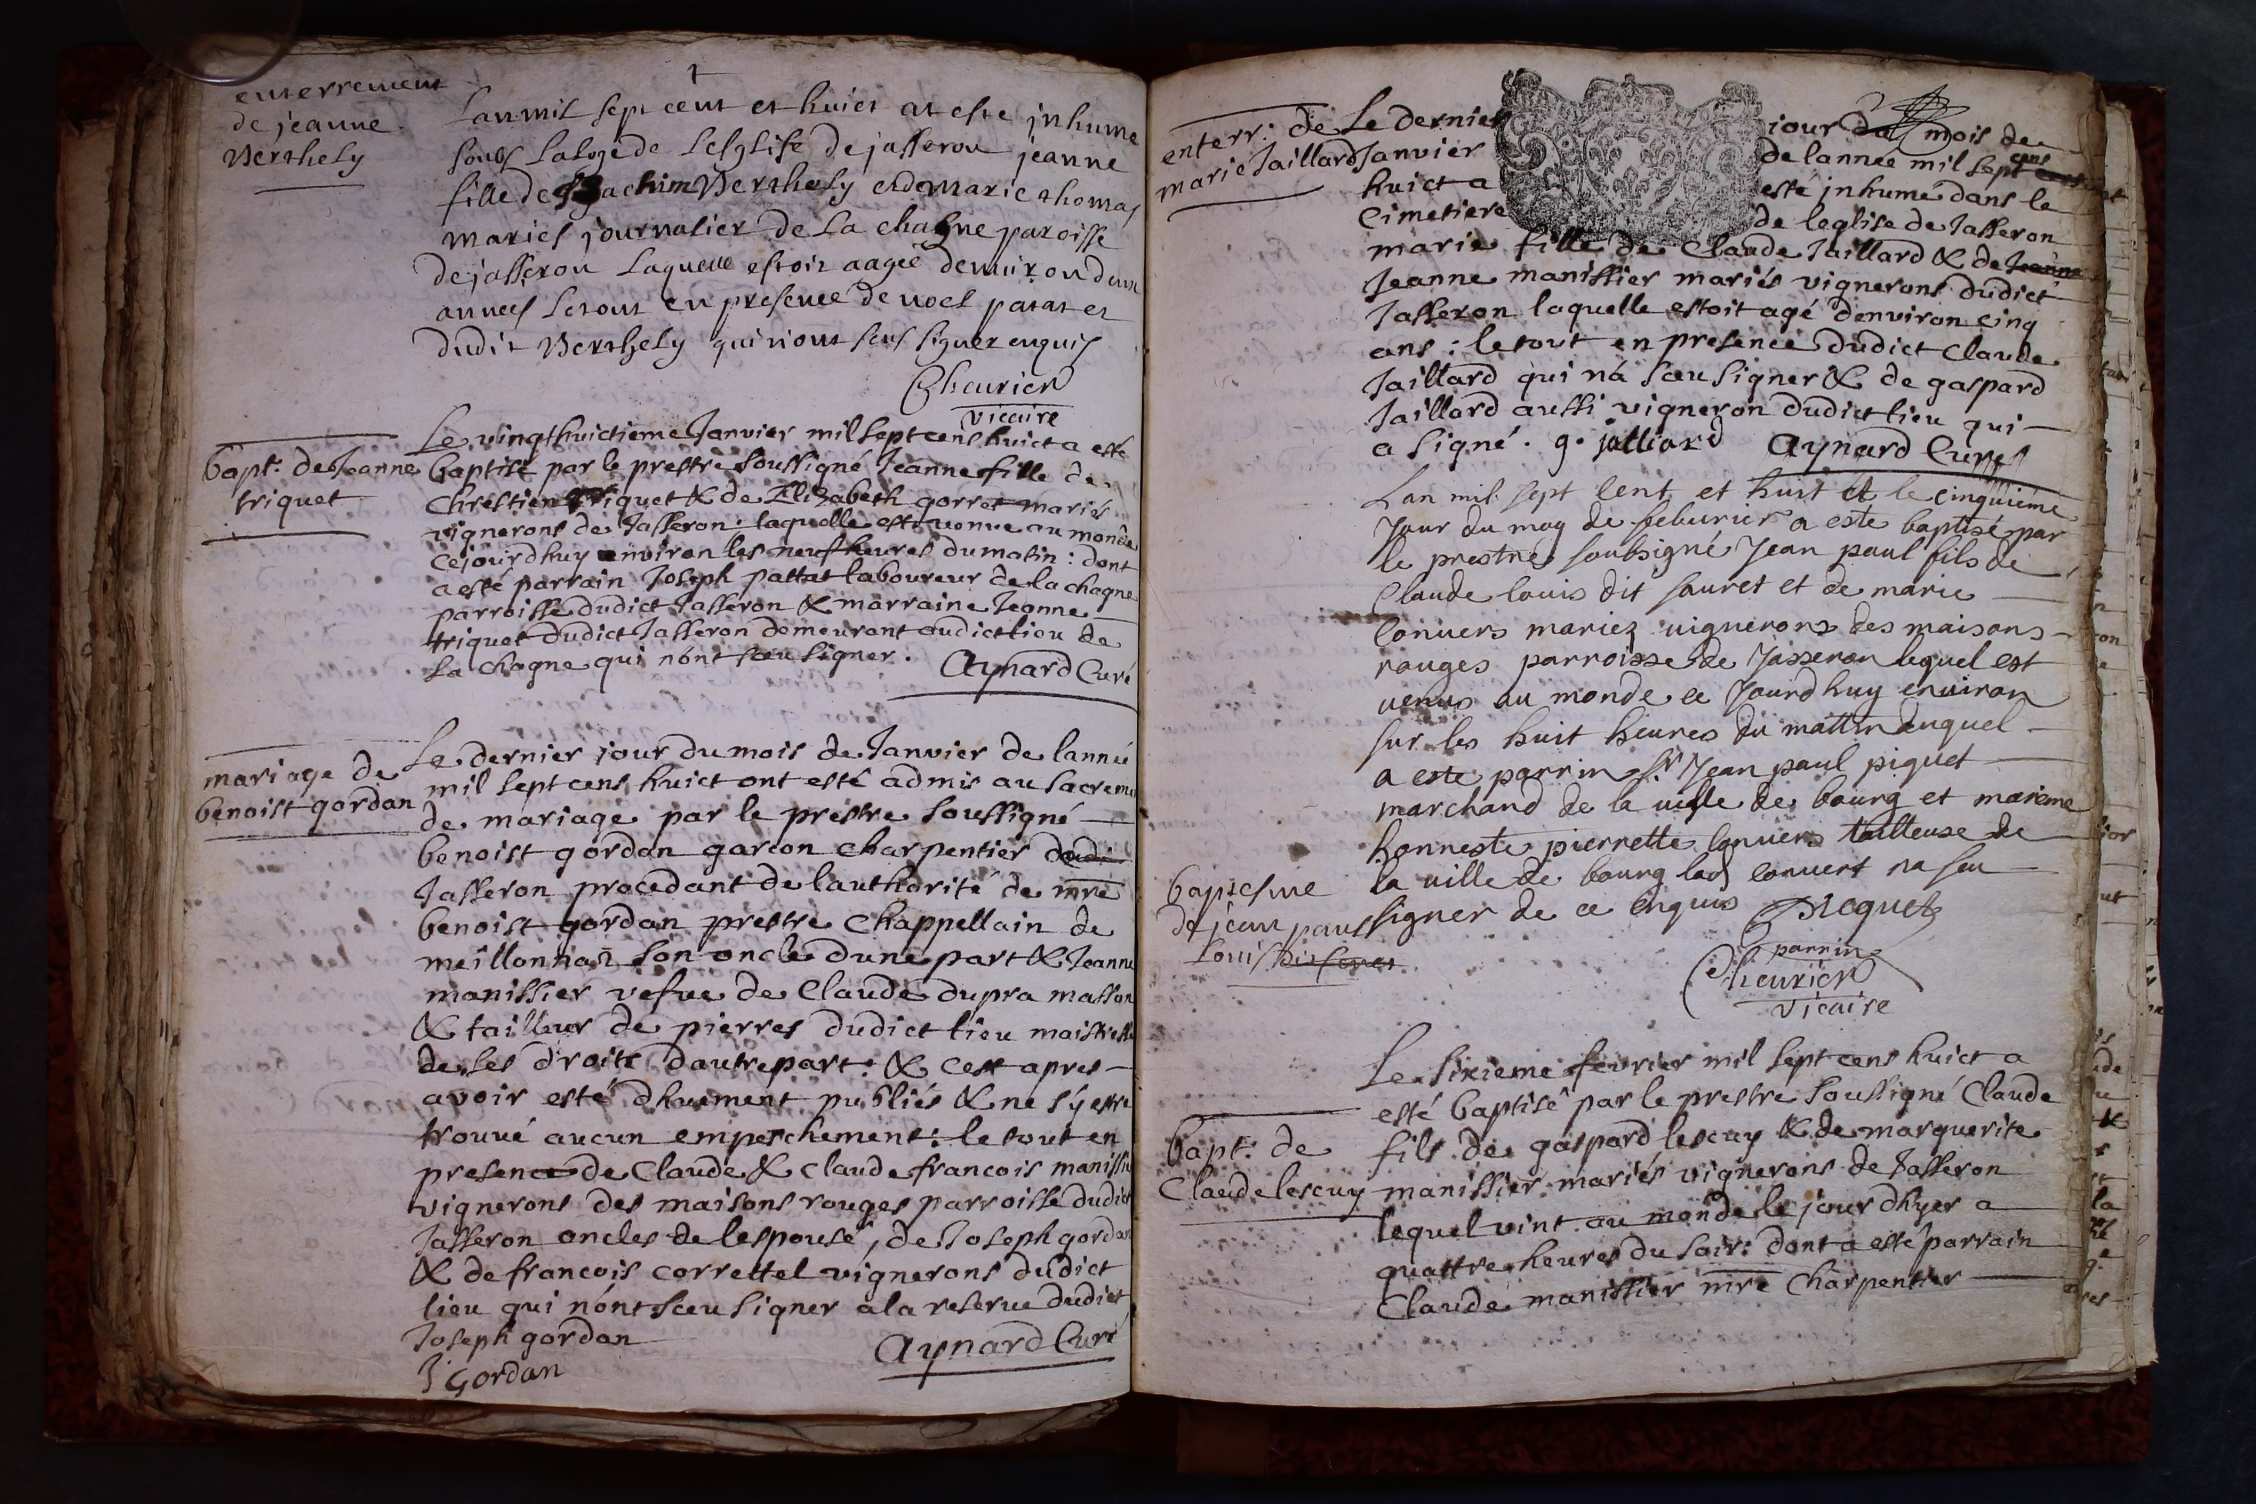 enterrement
de jeanne
Berthely
Lan mil sept cent et huict at este jnhume
soubs laloge de leglise de jasseron jeanne
fille de joachim Berthely et de marie thomas
mariés journalier de la chagne paroisse
de jasseron laquelle estoit aagée denviron deux
années le tout en presence de noel patat et
dudit Berthely qui niont seus signer enquis
Cheurier
vicaire
bapt: de Jeanne
triquet
Le vingthuictieme Janvier mil sept cens huict a esté
baptisé par le prestre soussigné Jeanne fille de
Chrestien triquet & de Elizabeth gorret mariés
vignerons de Jasseron: laquelle est venue au monde
cejourdhuy environ les neuf heures du matin: dont
a esté parrain Joseph pattat laboureur de la chagne
parroisse dudict Jasseron & marraine Jeanne
triquet dudict Jasseron demeurant audict lieu de
la chagne qui nont sceu signer. Aynard Curé
mariage de
benoist gordan
Le dernier jour du mois de Janvier de lannée
mil sept cens huict ont esté admis au sacreme
de mariage par le prestre soussigné
benoist gordan garcon charpentier dudi
Jasseron procedant de lauthorité de mre
benoist gordan prestre Chappellain de
meillonnaz son oncle dune part & Jeanne
manissier vefue de Claude dupra masson
& tailleur de pierres dudict lieu maistresse
de ses droits dautrepart: & cest apres
avoir esté dhuement publiés & ne sy estre
trouvé aucun empeschement: le tout en
presence de Claude & claude francois manissie
vignerons des maisons rouges parroisse dudict
Jasseron oncles de lespouse, de Joseph gordan
& de francois correttel vignerons dudict
lieu qui nont sceu signer a la reserve dudict
Joseph gordan
J gordan
Aynard Curé
enterr: de
marie Jaillard
Le dernier jour du mois de
Janvier de lannee mil sept cens
huict a esté jnhumé dans le
Cimetiere de leglise de Jasseron
marie fille de Claude Jaillard & de Jeanne
Jeanne manissier mariés vignerons dudict
Jasseron laquelle estoit agé denviron cinq
ans: le tout en presence dudict Claude
Jaillard qui na sceu signer & de gaspard
Jaillard aussi vigneron dudict lieu qui
a signé. g. jalliard Aynard Curé
Lan mil sept cent et huit et le cinquieme
Jour du moy de feburier a este baptisé par
le prestre soubsigné Jean paul fils de
Claude louis dit sauret et de marie
Conuers mariez uignerons des maisons
rouges parroisse de Jasseron lequel est
uenus au monde ce Jourdhuy enuiron
sur les huit heures du mattin duquel
a este parrin Sr Jean paul piquet
marchand de la uille de bourg et mareme
honneste pierrette Conuers tailleuse de
la uille de bourg lad conuert na seu
signer de ce enquis Picquet
parrin
Cheurier
vicaire
baptesme
de jean paul
Louis dit soret
bapt: de
Claude lescuy
Le sixieme fevrier mil sept cens huict a
esté baptisé par le prestre soussigné Claude
fils de gaspard lescuy & de marguerite
manissier mariés vignerons de Jasseron
lequel vint au monde le jour dhyer a
quattre heures du soir: dont a esté parrain
Claude manissier mre Charpentier